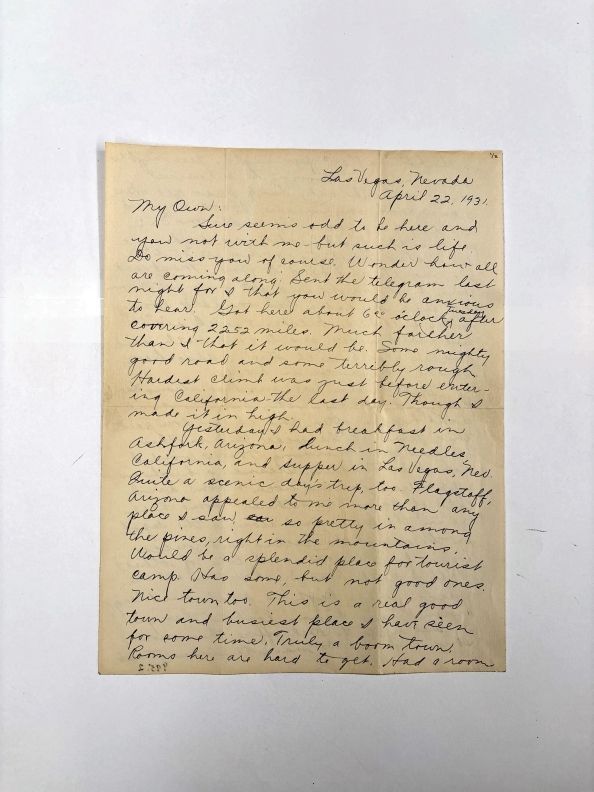 1/2
Las Vegas, Nevada
April 22, 1931.
My Own:
Sure seems odd to be here and
you not with me - but such is life.
Do miss you of course. Wonder how all
are coming along. Sent the telegram last
night for I that you would be anxious
to hear. Got here about 6 00 o'clock, Tuesday after
covering 2252 miles. Much farther
than I that it would be. Some mighty
good road and some terribly rough.
Hardest climb was just before enter-
ing California - the last day. Though I
made it in high.
Yesterday I had breakfast in
Ashfork, Arizona, lunch in Needles,
California, and supper in Las Vegas, Nev.
Quite a scenic day's trip, too. Flagstaff,
Arizona appealed to me more than any
place I saw, so pretty in among
the pines, right in the mountains.
Would be a splendid place for tourist
camp. Has some, but not good ones.
Nice town too. This is a real good
town and busiest place I have seen
for some time. Truly a boom town.
Rooms here are hard to get. Had a room